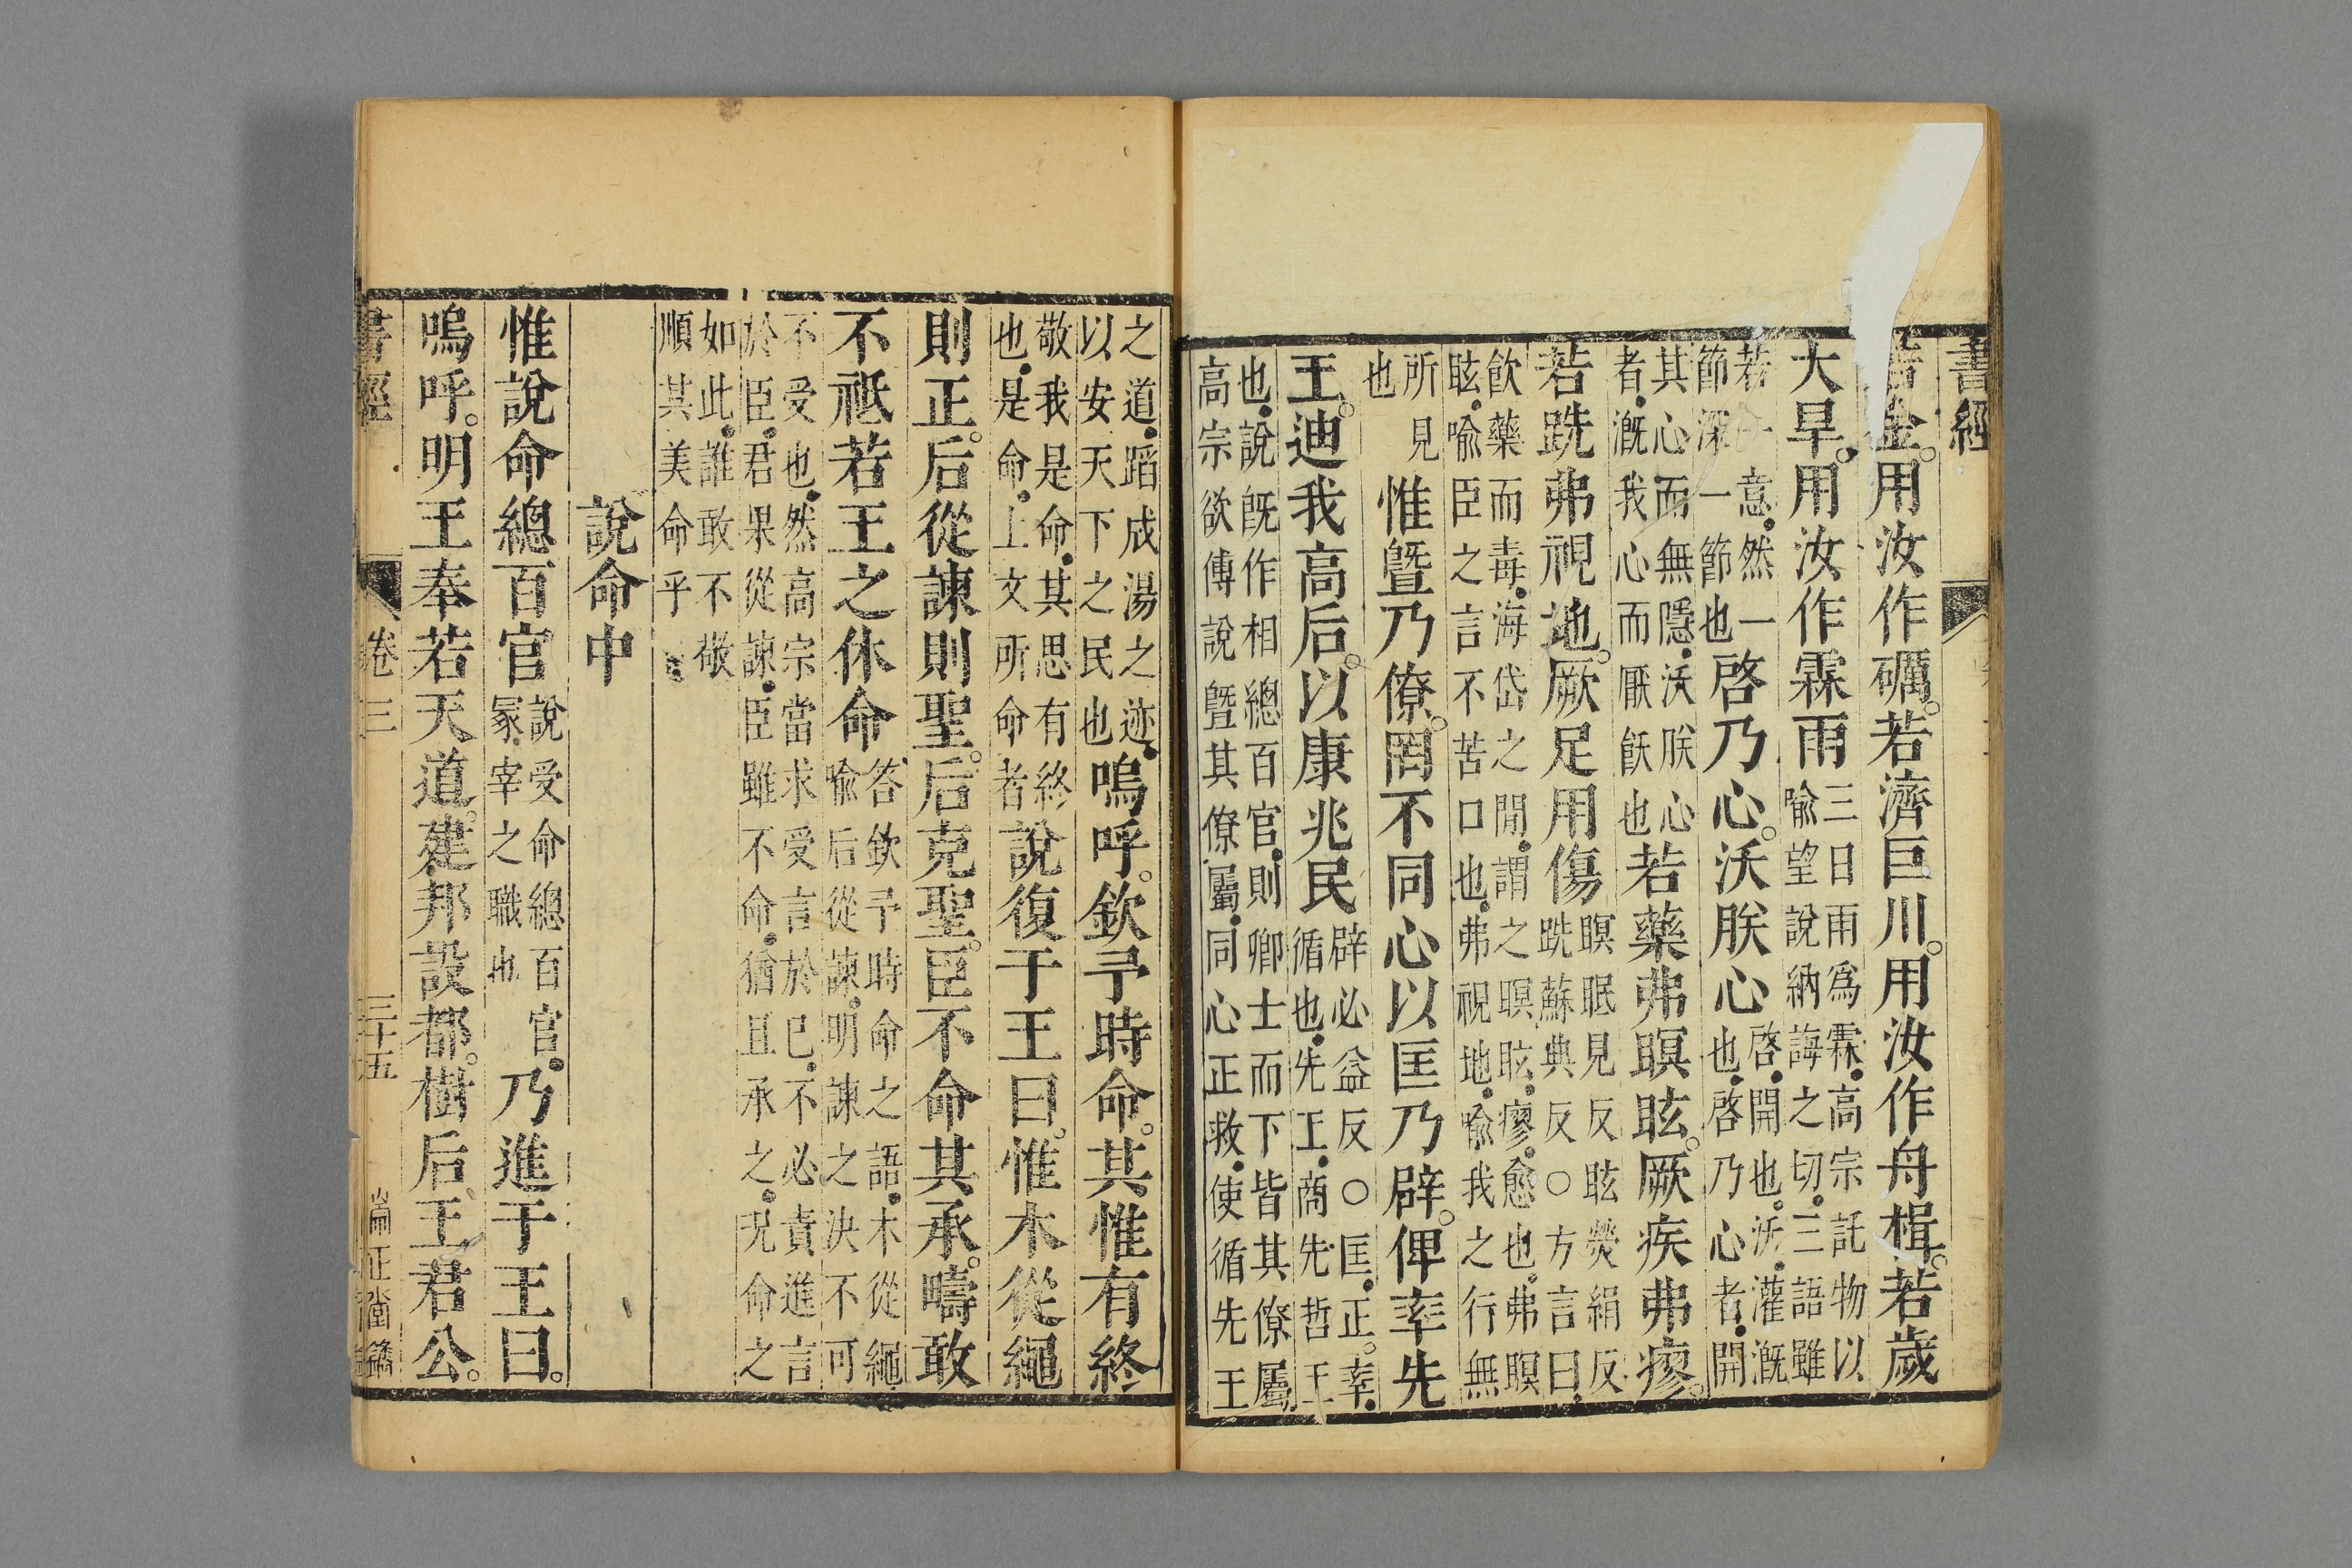 書經
若金。用汝作礪。若濟巨川。用汝作舟楫。若歲
大旱。用汝作霖雨三日雨爲霖高宗託物以喻望說納誨之切三語雖
若一意然一節深一節也啓乃心。沃朕心啓開也沃灌漑也啓乃心者開
其心而無隱沃朕心者漑我心而厭飫也若藥弗瞑眩。厥疾弗瘳。
若跣弗視地。厥足用傷瞑眠見反眩熒絹反跣蘇典反○方言曰
飲藥而毒海岱之閒謂之瞑眩瘳愈也弗瞑眩喩臣之言不苦口也弗視地喩我之行無
所見也惟曁乃僚。罔不同心以匡乃辟。俾率先
王。迪我高后。以康兆民辟必益反○匡正率循也先王商先哲王
也說旣作相總百官則卿士而下皆其僚屬高宗欲傅說曁其僚屬同心正救使循先王
之道蹈成湯之迹以安天下之民也嗚呼。欽予時命。其惟有終
敬我是命其思有終也是命上文所命者說復于王曰。惟木從繩
則正。后從諫則聖。后克聖。臣不命其承。疇敢
不祗若王之休命答欽予時命之語木從繩喩后從諫明諫之決不可
不受也然高宗當求受言於己不必責進言於臣君果從諫臣雖不命猶且承之况命之
如此誰敢不敬順其美命乎
說命中
惟說命總百官說受命總百官冢宰之職也乃進于王曰。
嗚呼。明王奉若天道。建邦設都。樹后王君公。
書經 卷三 三十五